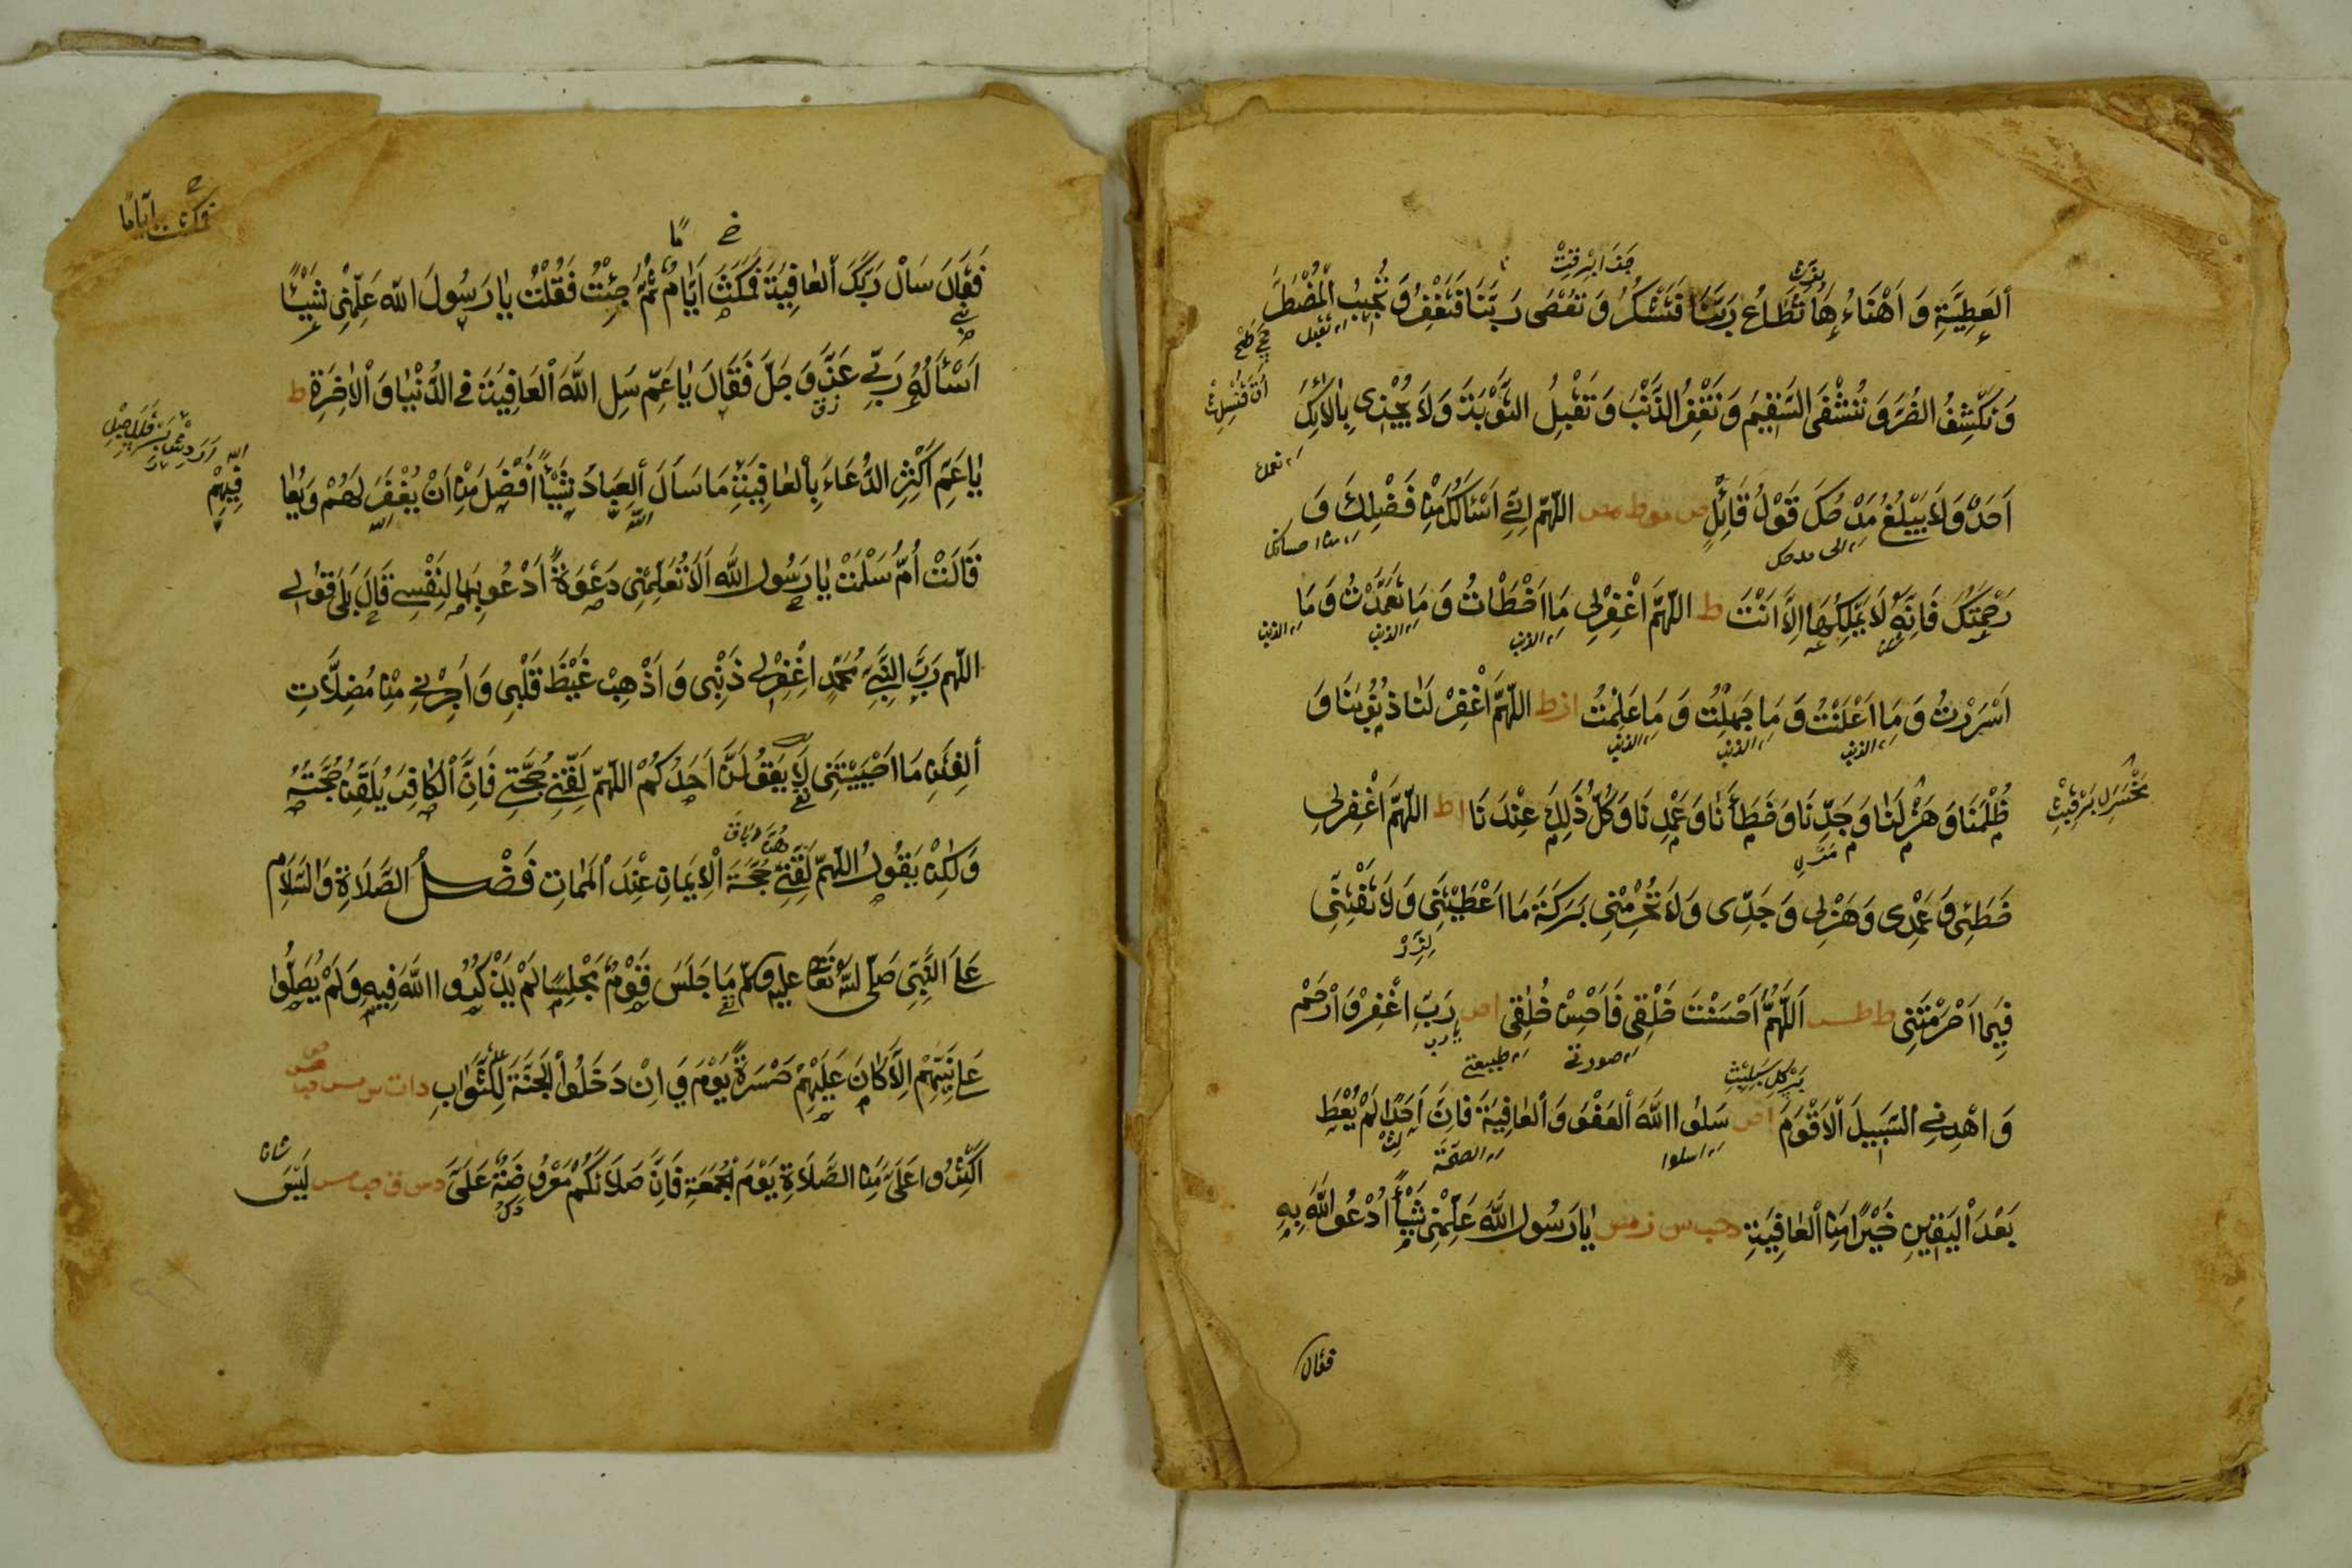 ٱلْعَطِيَّةِ وَ اَهْنَاءُهَا تُطَاعُ رَبَّنَا فَتَشْكُرُ وَ تُعْصٰى رَبَّنَا فَتَغْفِرُ وَ تُجِيْبُ الْمُضْطَرَّ
وَ تَكْشِفُ الضُّرَّ وَ تَشْفِى السَّقِيْمَ وَ تَغْفِرُ الذَّنْبَ وَ تَقْبَلُ التَّوْبَةَ وَ لَا يَجْزِى بِاٰلَائِكَ
اَحَدٌ وَ لَا يَبْلُغُ مِدْحَتَكَ قَوْلُ قَائِلٍ ص مو ط مص اللّٰهُمَّ اِنِّى اَسْئَلُكَ مِنْ فَضْلِكَ وَ
رَحْمَتِكَ فَاِنَّهُ لَا يَمْلِكُهَا اِلَّا اَنْتَ ط اللّٰهُمَّ اغْفِرْلِى مَا اَخْطَأْتُ وَ مَا تَعَمَّدْتُ وَ مَا
اَسْرَرْتُ وَ مَا اَعْلَنْتُ وَ مَا جَهِلْتُ وَ مَا عَلِمْتُ ا ز ط اللّٰهُمَّ اغْفِرْ لَنَا ذُنُوْبَنَا وَ
ظُلْمَنَا وَ هَزْلَنَا وَ جِدَّنَا وَ خَطَأَنَا وَ عَمْدَنَا وَ كُلُّ ذٰلِكَ عِنْدَنَا ا ط اللّٰهُمَّ اغْفِرلِى
خَطَئِى وَ عَمْدِى وَ هَزْلِى وَ جِدِّى وَ لَا تَحْرِمْنِى بَرَكَةَ مَا اَعْطَيْتَنِى وَ لَا تَفْتِنِّى
فِيْمَا اَحْرَمْتَنِى ط طس اَللّٰهُمَّ اَحْسَنْتَ خَلْقِى فَاَحْسِنْ خُلُقِى ا ص رَبِّ اغْفِرْ وَ ارْحَمْ
وَ اهْدِنِى السَّبِيْلَ الْاَقْوَمَ ا ص سَلُوا اللّٰهَ الْعَفْوَ وَ الْعَافِيَةَ فَاِنَّ اَحَدًا لَمْ يُعْطَ
بَعْدَ الْيَقِيْنِ خَيْرًا مِنَ الْعَافِيَةِ ت حب س ق مس يَا رَسُوْلَ اللّٰهِ عَلِّمْنِى شَيْئًا اَدْعُو اللّٰهَ بِهٖ
فقال
فَقَالَ سَلْ رَبَّكَ الْعَافِيَةَ فَمَكَثَ اَيَّامٌ ثُمَّ جِئْتُ فَقُلْتُ يَا رَسُوْلَ اللّٰهِ عَلِّمْنِى شَيْئًا
فمكثت اياما
اَسْئَلُهُ رَبِّى عَزَّ وَ جَلَّ فَقَالَ يَا عَمِّ سَلِ اللّٰهَ الْعَافِيَةَ فِى الدُّنْيَا وَ الْاٰخِرَةِ ط
يَا عَمِّ اَكْثِرِ الدُّعَاءَ بِالْعَافِيَةِ مَا سَاَلَ الْعِبَادُ شَيْئًا اَفْضَلَ مِنْ اَنْ يُغْفَرَ لَهُمْ وَ يُعَا
فِيْهِمْ
قَالَتْ اُمُّ سَلَمَةَ يَا رَسُوْلَ اللّٰهِ اَلَا تُعَلِّمُنِى دَعْوَةً اَدْعُو بِهَا لِنَفْسِى قَالَ بَلٰى قُوْلِى
اللّٰهُمَّ رَبَّ النَّبِىِّ مُحَمَّدٍ اغْفِرْلِى ذَنْبِى وَ اَذْهِبْ غَيْظَ قَلْبِى وَ اَجِرْنِى مِنْ مُضِلَّاتِ
الْفِتَنِ مَا اَحْيَيْتَنِى لَا يَقُوْلَنَّ اَحَدُكُمْ اللّٰهُمَّ لَقِّنِّى حُجَّتِى فَاِنَّ الْكَافِرَ يُلَقَّنُ حُجَّتَهُ
وَ لٰكِنْ يَقُوْلُ اللّٰهُمَّ لَقِّنِّى حُجَّةَ الْاِيْمَانِ عِنْدَ الْمَمَاتِ فَضْلُ الصَّلَاةِ وَ السَّلَامِ
عَلَى النَّبِىِّ صَلَّى اللّٰهُ تَعَالٰى عليه وسلم مَا جَلَسَ قَوْمٌ مَجْلِسًا لَمْ يَذْكُرُوا اللّٰهَ فِيْهِ وَ لَمْ يُصَلُّوا
عَلٰى نَبِيِّهِمْ اِلَّا كَانَ عَلَيْهِمْ حَسْرَةً يَوْمَ وَ اِنْ دَخَلُوا الْجَنَّةَ لِلثَّوَابِ د ا ت س مس حب
اَكْثِرُوا عَلَىَّ مِنَ الصَّلَاةِ يَوْمَ الْجُمُعَةِ فَاِنَّ صَلَاتَكُمْ مَعْرُوْضَةٌ عَلَىَّ د س ق حب مس لَيْسَ